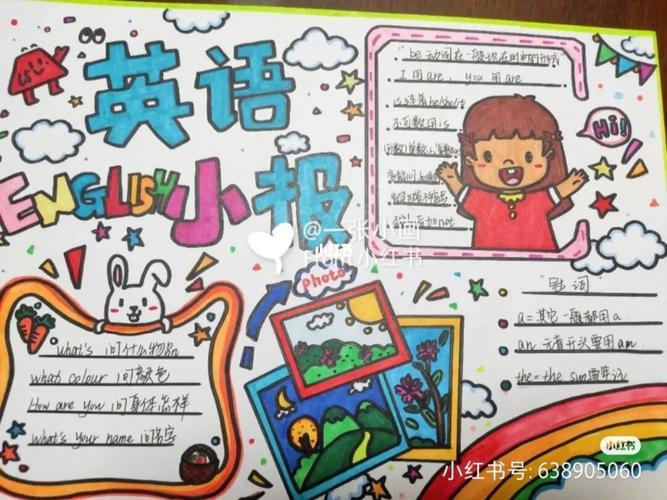 英语
ENGLISH 小报
"be动词在一般现在时中的形式"
I 用are, you 用are
is连着he/she/it
不可数用is
后加not
Hi!
@一张小画
From 小红书
photo
what's 问什么物品
what colour 问颜色
How are you 问身体怎样
what's your name 问名字
"冠词"
a=其它一般都用a.
an 元音开头要用an.
the=the sun
小红书
小红书号: 638905060